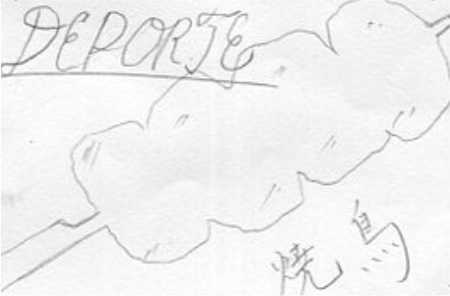 DEPORTE
焼鳥